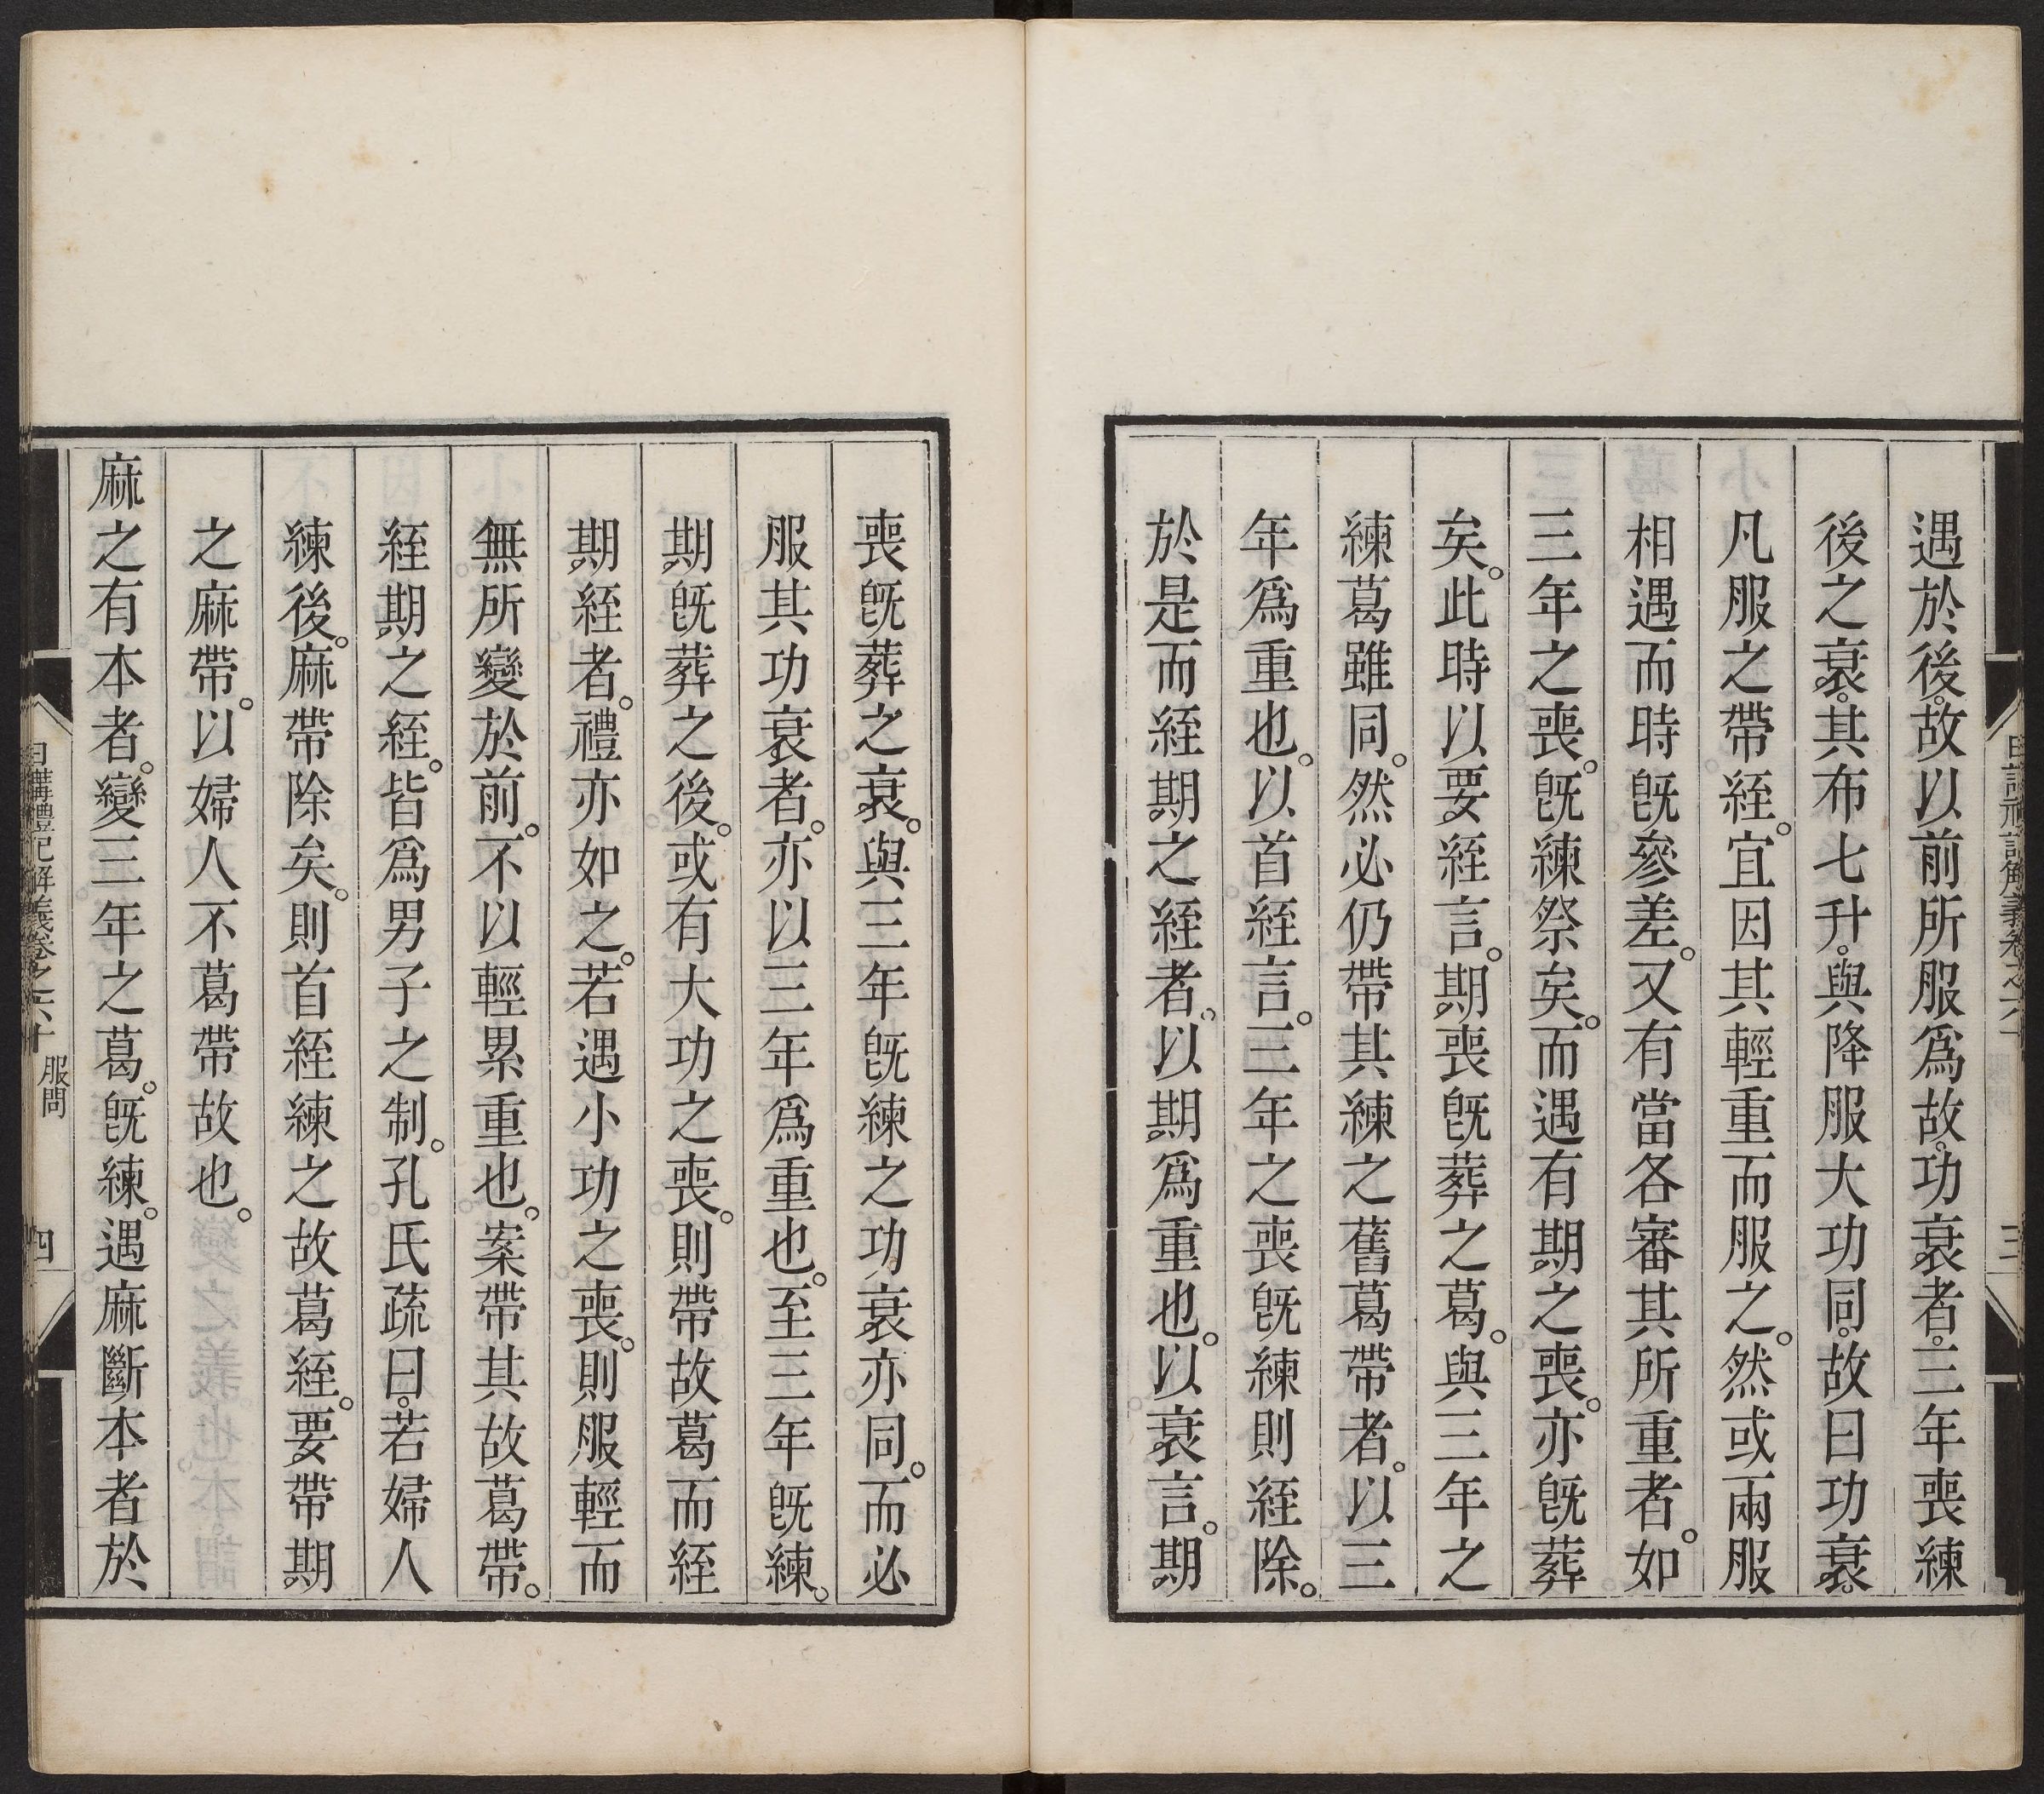 遇於後。故以前所服爲故。功衰者。三年喪練
後之衰。其布七升。與降服大功同。故曰功衰。
凡服之帶絰。宜因其輕重而服之。然或兩服
相遇而時旣參差。又有當各審其所重者。如
三年之喪。旣練祭矣。而遇有期之喪。亦旣葬
矣。此時以要絰言。期喪旣葬之葛。與三年之
練葛雖同。然必仍帶其練之舊葛帶者。以三
年爲重也。以首絰言。三年之喪旣練則絰除。
於是而絰期之絰者。以期爲重也。以衰言。期
三
喪旣葬之衰。與三年旣練之功衰亦同。而必
服其功衰者。亦以三年爲重也。至三年旣練。
期旣葬之後。或有大功之喪。則帶故葛而絰
期絰者。禮亦如之。若遇小功之喪。則服輕而
無所變於前。不以輕累重也。案帶其故葛帶。
絰期之絰。皆爲男子之制。孔氏疏曰。若婦人
練後。麻帶除矣。則首絰練之故葛絰。要帶期
之麻帶。以婦人不葛帶故也。
麻之有本者。變三年之葛。旣練。遇麻斷本者於
日講禮記解義卷之六十 服問 四